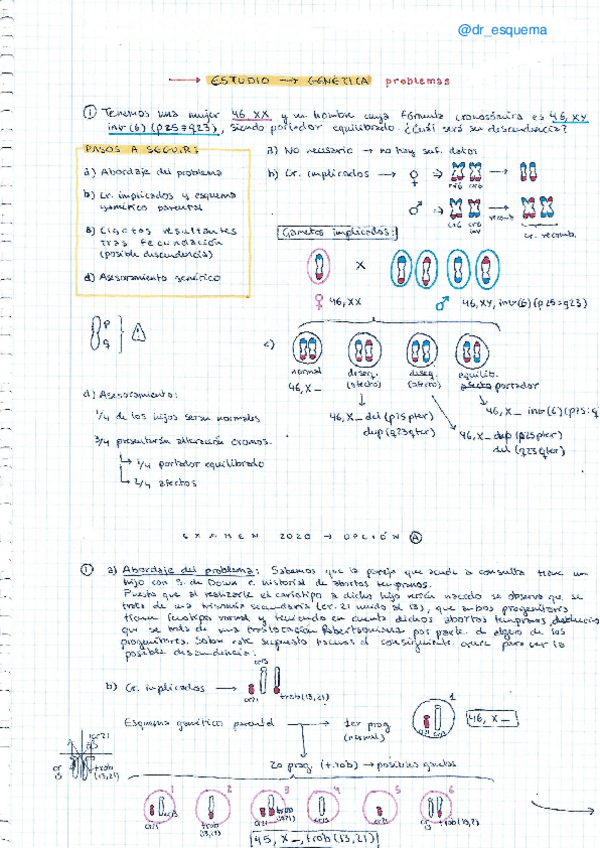 @dr_esquema
ESTUDIO → GENÉTICA problemas
① Tenemos una mujer 46, XX y un hombre cuya fórmula cromosómica es 46, XY
inv(6)(p25;q23), siendo portador equilibrado. ¿Cuál será su descendencia?
PASOS A SEGUIR:
a) Abordaje del problema
b) Cr. implicados y esquema
gamético parental
c) Cigotos resultantes
tras fecundación
(posible descendencia)
d) Asesoramiento genético
a) No necesario → no hay suf. datos
b) Cr. implicados → ♀ →
cr6 cr6
♂ →
cr6 cr6 inv
recomb.
cr. recomb.
Gametos implicados:
x
♀ 46, XX
♂ 46, XY, inv(6)(p25;q23)
p
q
c)
normal
deseq. (afecto)
deseq. (afecto)
equilib.
portador
46, X_
46, X_ del (p25pter)
dup (q23qter)
46, X_ dup (p25pter)
del (q23qter)
46, X_ inv(6)(p25;q
d) Asesoramiento:
1/4 de los hijos serán normales
3/4 presentarán alteración cromos.
→ 1/4 portador equilibrado
→ 2/4 afectos
EXAMEN 2020 → OPCIÓN Ⓐ
① a) Abordaje del problema: Sabemos que la pareja que acude a consulta tiene un
hijo con S. de Down e historial de abortos tempranos.
Puesto que al realizarle el cariotipo a dicho hijo recién nacido se observa que se
trata de una trisomía secundaria (cr. 21 unido al 13), que ambos progenitores
tienen fenotipo normal y teniendo en cuenta dichos abortos tempranos, deducimos
que se trata de una translocación Robertsoniana por parte de alguno de los
progenitores. Sobre este supuesto haremos el consiguiente para ver la
posible descendencia.
b) Cr. implicados →
cr13
cr21
t rob (13,21)
Esquema gamético parental → 1er prog
(normal)
1
cr21 cr13
46, X_
2o prog (t. rob) → posibles gametos
cr21
cr 13
t rob (13,21)
1 2 3 4 5 6
cr21 cr13
t rob (13,21)
cr21 t rob (13,21)
cr13
cr21
cr 13 t rob (13,21)
45, X_, t rob (13,21)